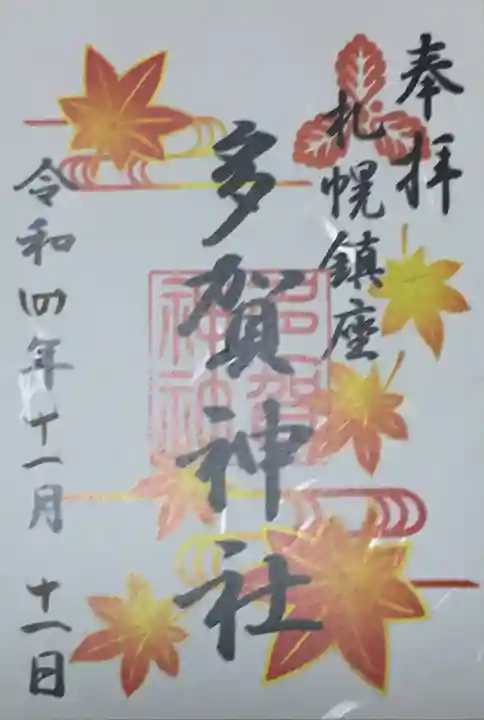 奉拝
札幌鎮座
多賀神社
令和四年十一月十一日